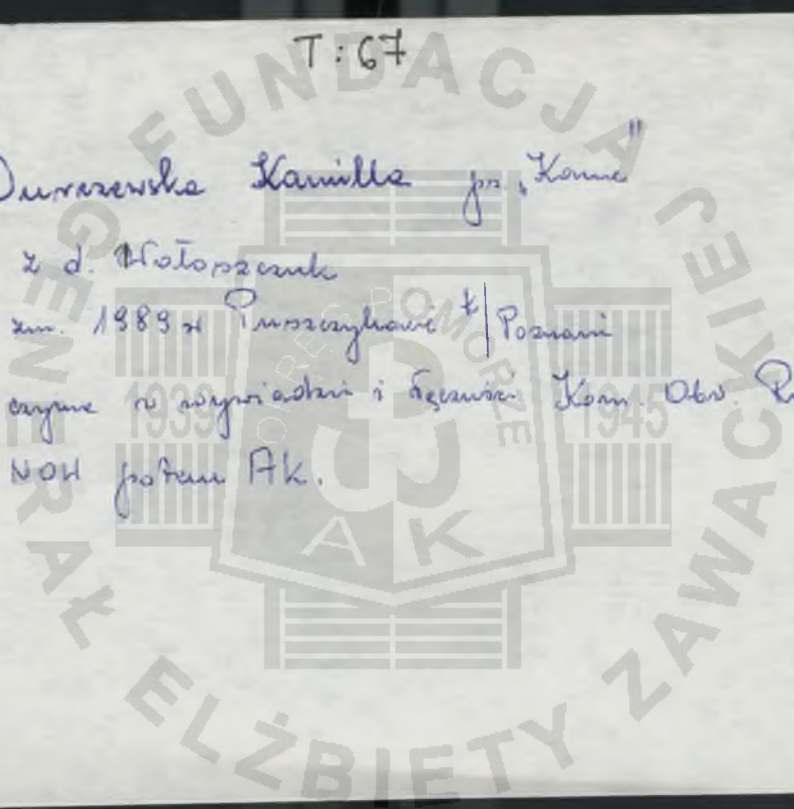 T: 67
Kamilla ps. „Kama"
z d. Wołoszczuk
zm. 1989 w Puszczykowie k/Poznani
czynna w wywiadzie i łączności Kom. Obw.
NOW potem AK.
FUNDACJA
GENERAŁ ELŻBIETY ZAWACKIEJ
OKRĘG POMORZE
1939 1945
AK